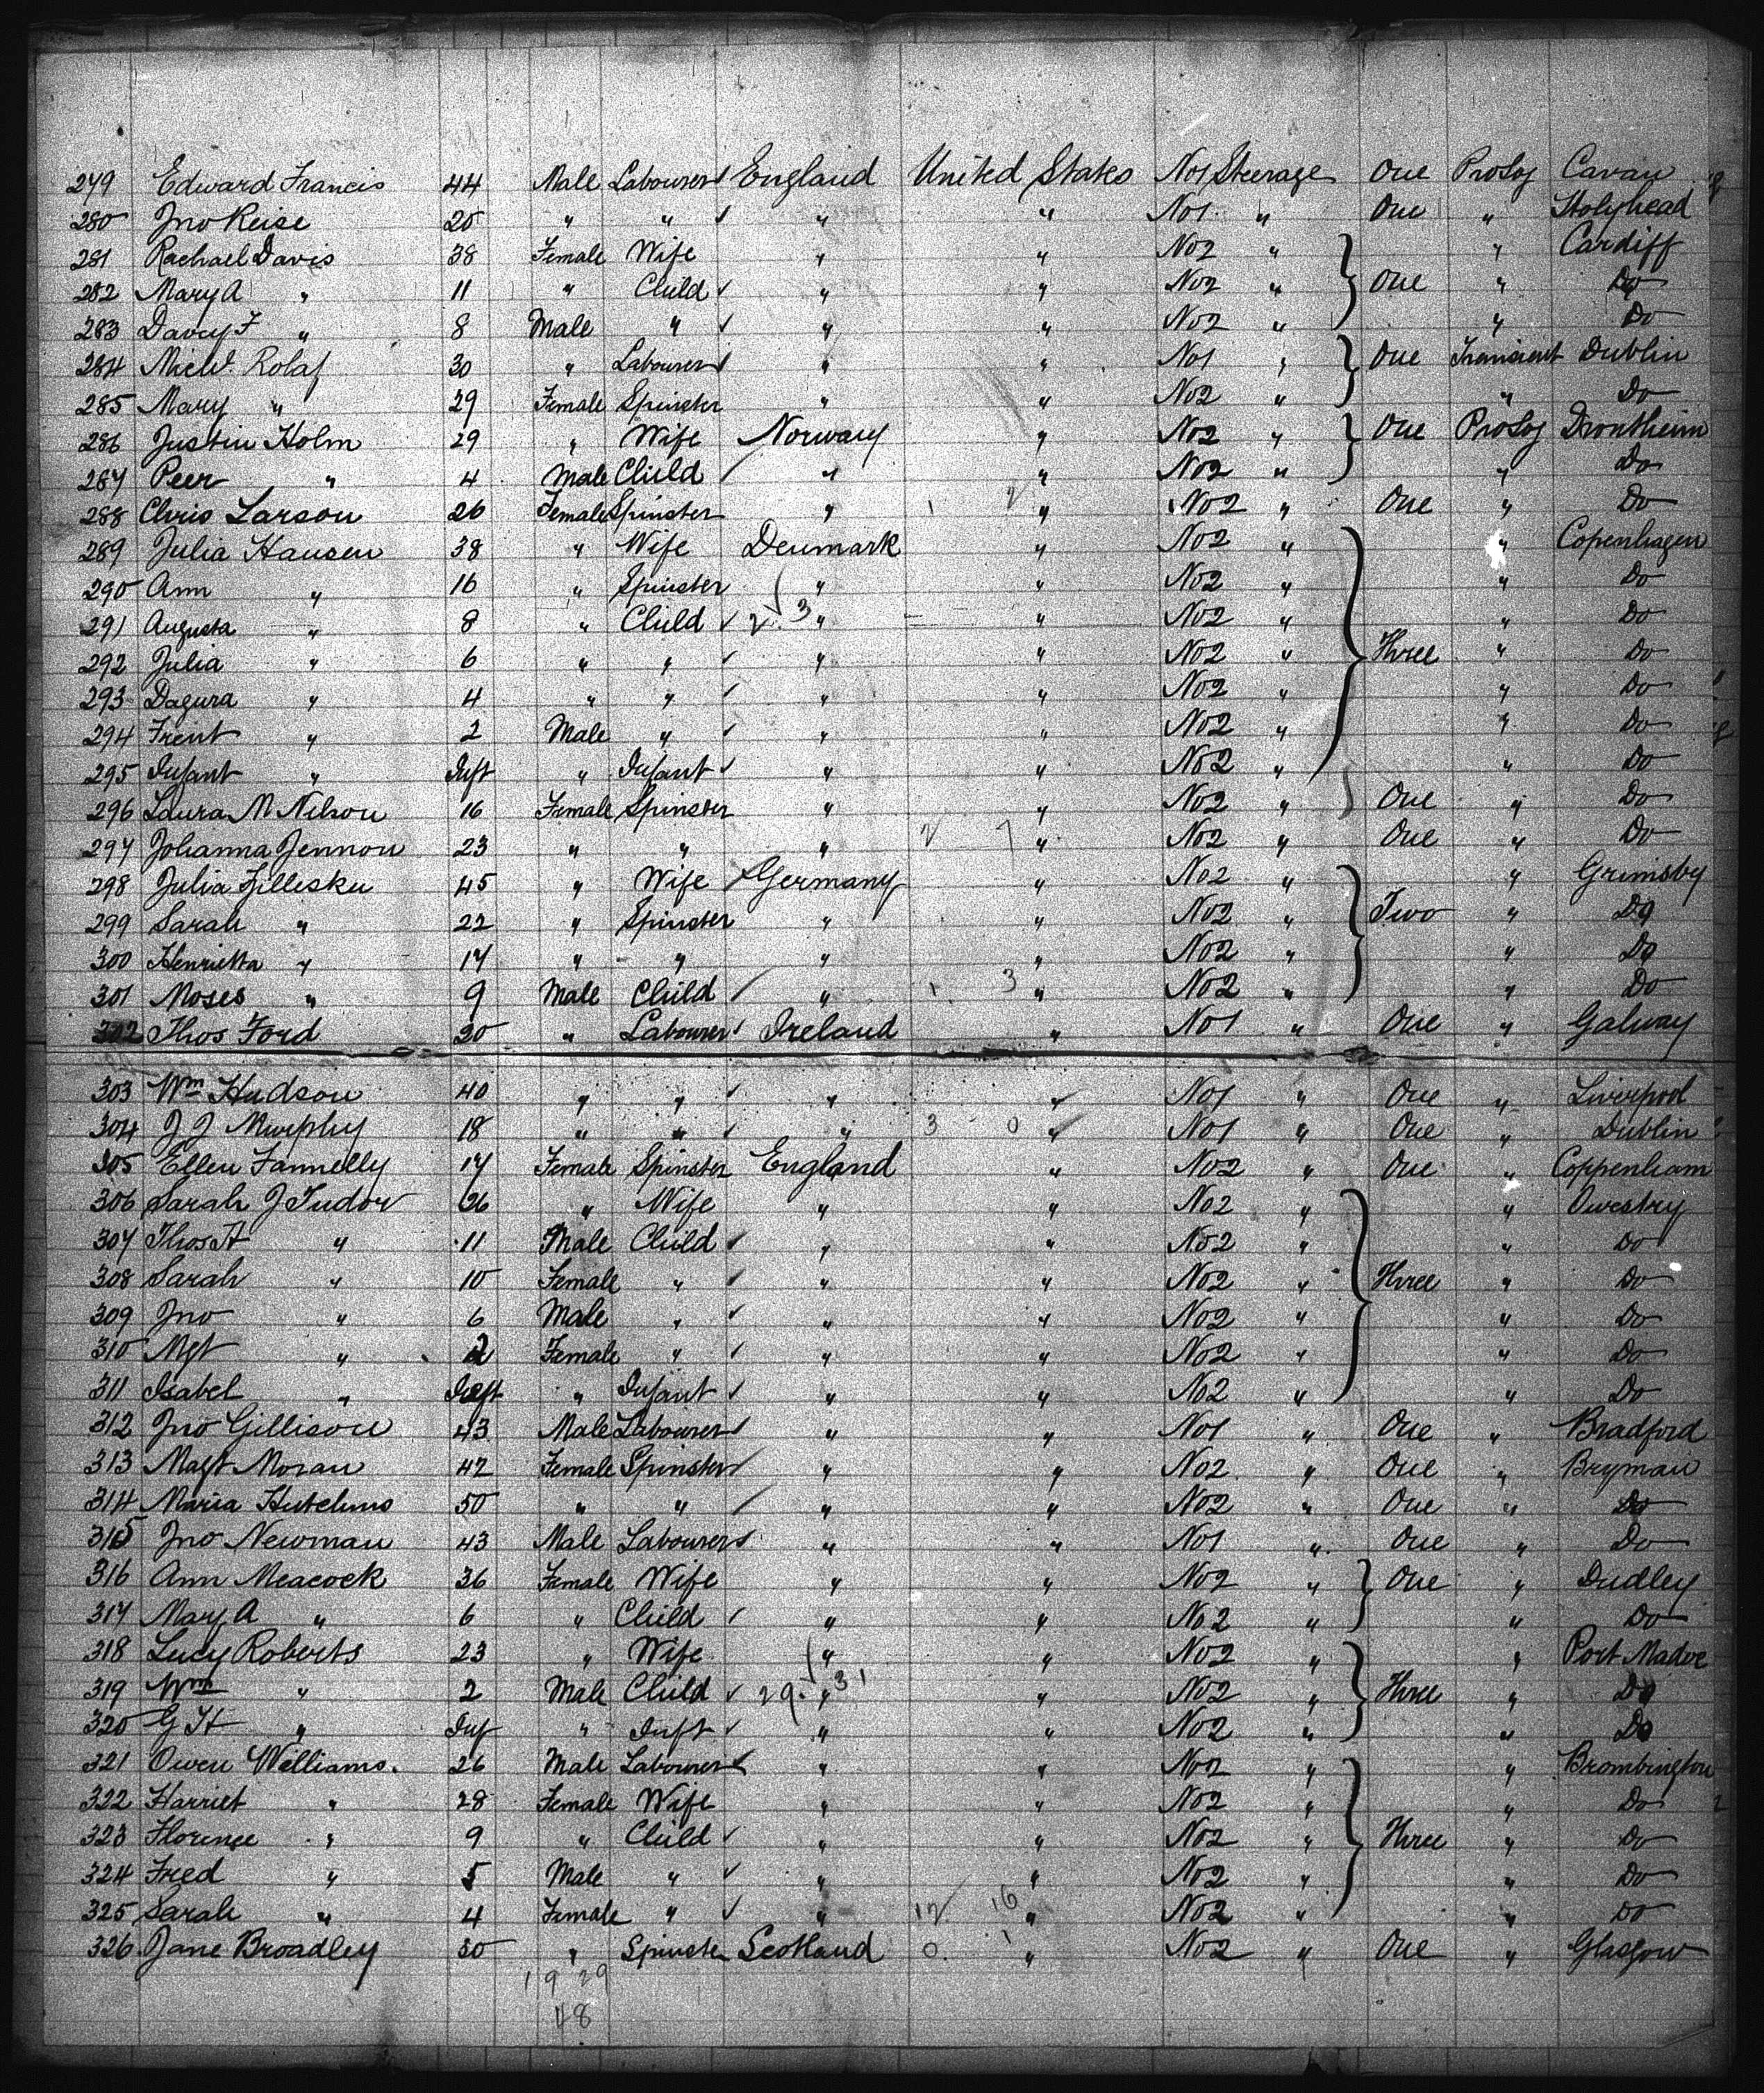 249 Edward Francis 44 Male Labourer England United States No1 Steerage One ProSoj Cavan
280 Jno Keise 20 " " " " No1 " One " Holyhead
281 Rachael Davis 38 Female Wife " " No2 " " Cardiff
282 Mary A " 11 " Child " " No2 " One " Do
283 Davey F " 8 Male " " " No2 " " Do
284 Michl. Rolaf 30 " Labourer " " No1 " One Transient Dublin
285 Mary " 29 Female Spinster " " No2 " " Do
286 Justin Holm 29 " Wife Norway " No2 " One ProSoj Drontheim
287 Peer " 4 Male Child " " No2 " " Do
288 Chris Larson 26 Female Spinster " " No2 " One " Do
289 Julia Hansen 38 " Wife Denmark " No2 " " Copenhagen
290 Ann " 16 " Spinster " " No2 " " Do
291 Augusta " 8 " Child 2 3 " " No2 " " Do
292 Julia " 6 " " " " No2 " Three " Do
293 Dagura " 4 " " " " No2 " " Do
294 Frent " 2 Male " " " No2 " " Do
295 Infant " Inft " Infant " " No2 " " Do
296 Laura M Nilson 16 Female Spinster " " No2 " One " Do
297 Johanna Jennon 23 " " " 2 7 " No2 " One " Do
298 Julia Zillesku 45 " Wife Germany " No2 " " Grimsby
299 Sarah " 22 " Spinster " " No2 " Two " Do
300 Henrietta " 17 " " " " No2 " " Do
301 Moses " 9 Male Child " 1 3 " No2 " " Do
302 Thos Ford 20 " Labourer Ireland " No1 " One " Galway
303 Wm Hudson 40 " " " " No1 " One " Liverpool
304 J J Murphy 18 " " " 3 0 " No1 " One " Dublin
305 Ellen Fannelly 17 Female Spinster England " No2 " One " Coppenham
306 Sarah J Tudor 26 " Wife " " No2 " " Owestry
307 Thos H " 11 Male Child " " No2 " " Do
308 Sarah " 10 Female " " " No2 " Three " Do
309 Jno " 6 Male " " " No2 " " Do
310 Mgt " 2 Female " " " No2 " " Do
311 Isabel " Inft " Infant " " No2 " " Do
312 Jno Gillison 43 Male Labourer " " No1 " One " Bradford
313 Magt Moran 42 Female Spinster " " No2 " One " Brymau
314 Maria Hutchins 50 " " " " No2 " One " Do
315 Jno Newman 43 Male Labourer " " No1 " One " Do
316 Ann Meacock 36 Female Wife " " No2 " One " Dudley
317 Mary A " 6 " Child " " No2 " " Do
318 Lucy Roberts 23 " Wife " " No2 " " Port Madoc
319 Wm " 2 Male Child 29 " 31 " No2 " Three " Do
320 G H " Inf " Inft " " No2 " " Do
321 Owen Williams. 26 Male Labourer " " No2 " " Brombington
322 Harriet " 28 Female Wife " " No2 " " Do
323 Florence " 9 " Child " " No2 " Three " Do
324 Fred " 5 Male " " " No2 " " Do
325 Sarah " 4 Female " " 12 16 " No2 " " Do
326 Jane Broadley 50 " Spinster Scotland 0 1 " No2 " One " Glasgow
19 29
48